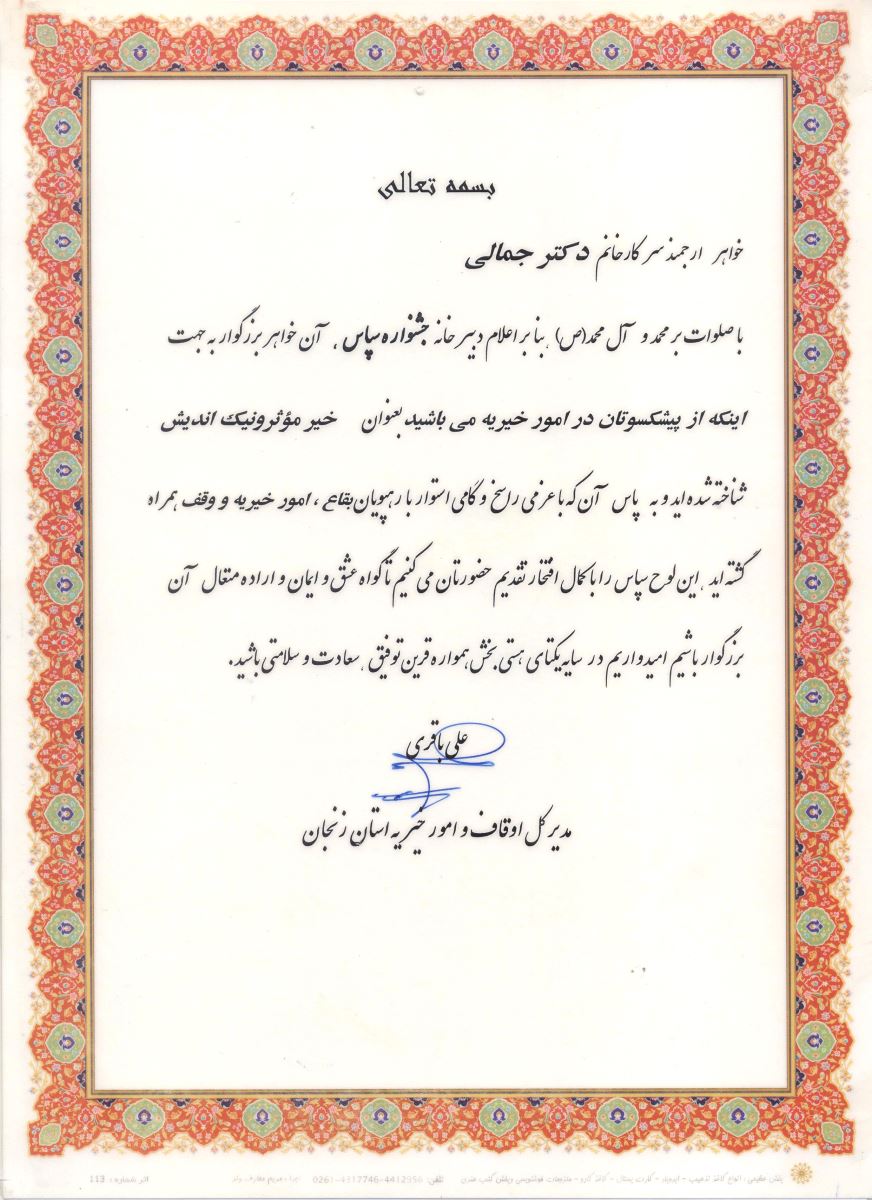 بسمه تعالی
خواهر ارجمند سرکار خانم دکتر جمالی
با صلوات بر محمد و آل محمد(ص) ، بنا بر اعلام دبیرخانه جشنواره سپاس ، آن خواهر بزرگوار به جهت
اینکه از پیشکسوتان در امور خیریه می باشید بعنوان خیر مؤثرونیک اندیش
شناخته شده اید و به پاس آن که با عزمی راسخ و گامی استوار با رهپویان بقاع ، امور خیریه و وقف همراه
گشته اید ، این لوح سپاس را با کمال افتخار تقدیم حضورتان می کنیم تا گواه عشق و ایمان و اراده متعال آن
بزرگوار باشیم امیدواریم در سایه یکتای هستی بخش همواره قرین توفیق ، سعادت و سلامتی باشید.
علی باقری
مدیر کل اوقاف و امور خیریه استان زنجان
پخش حکیمی : انواع کاغذ تذهیب - - کارت پستال - کاغذ کادو - ملزومات خوشنویسی وپخش کتب هنری تلفن: 4412956-4317746-0261 اثر شماره : 113